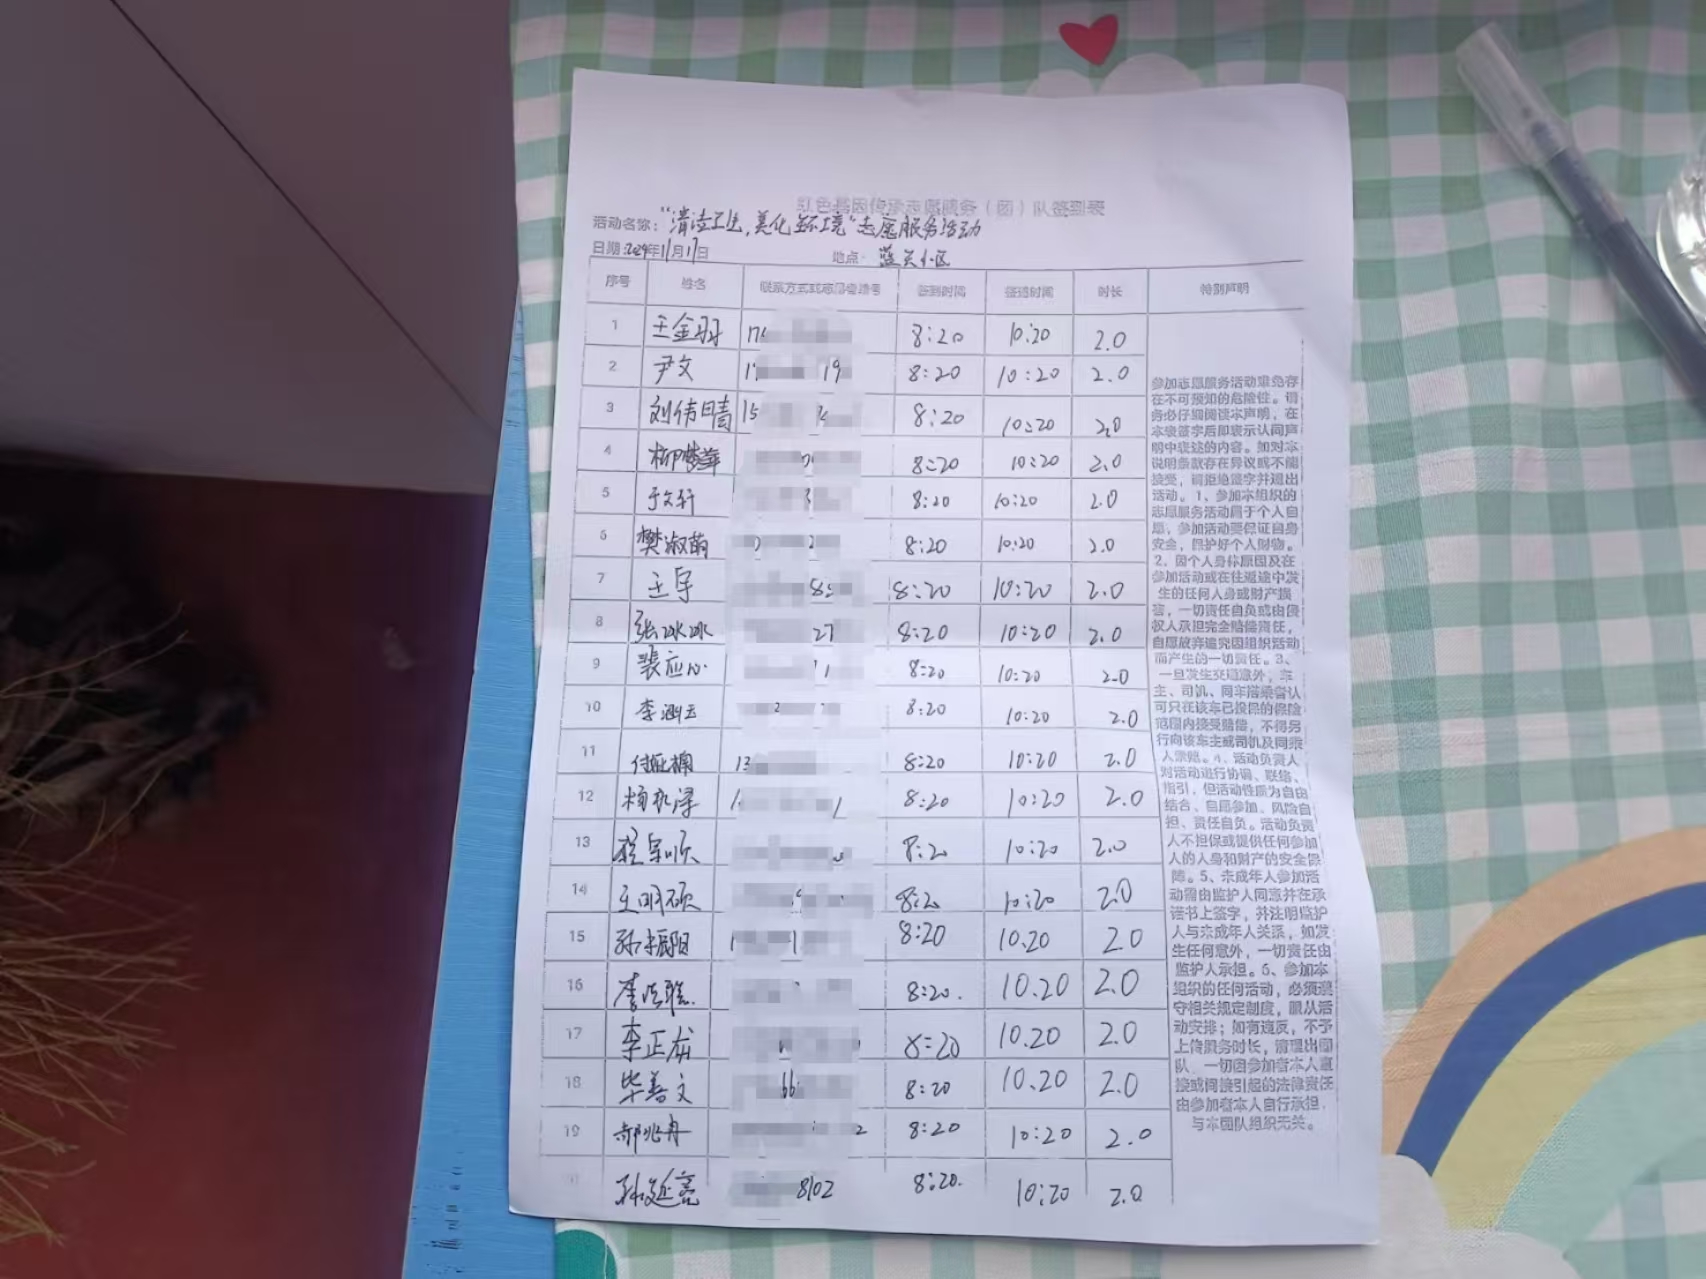 红色基因传承志愿服务（团）队签到表
活动名称：“清洁卫生，美化环境”志愿服务活动
日期：2024年11月17日 地点：蓝天小区
序号 姓名 联系方式或志愿者编号 签到时间 签退时间 时长 特别声明
1 王金羽 8:20 10:20 2.0
2 尹文 19 8:20 10:20 2.0
3 刘伟晴 15 8:20 10:20 2.0
4 柳梦萍 8:20 10:20 2.0
5 于文轩 8:20 10:20 2.0
6 樊淑萌 8:20 10:20 2.0
7 王宇 8:20 10:20 2.0
8 张冰冰 27 8:20 10:20 2.0
9 裴应心 8:20 10:20 2.0
10 李 8:20 10:20 2.0
11 付 13 8:20 10:20 2.0
12 杨 8:20 10:20 2.0
13 8:20 10:20 2.0
14 王明硕 8:20 10:20 2.0
15 孙振阳 8:20 10.20 2.0
16 李 8:20. 10.20 2.0
17 李正龙 8:20 10.20 2.0
18 毕善文 66 8:20 10.20 2.0
19 郝兆舟 2 8:20 10:20 2.0
孙延亮 8102 8:20. 10:20 2.0
参加志愿服务活动难免存
在不可预知的危险性。请
务必仔细阅读本声明，在
本表签字后即表示认同声
明中表述的内容。如对本
说明条款存在异议或不能
接受，请拒绝签字并退出
活动。1、参加本组织的
志愿服务活动属于个人自
愿，参加活动要保证自身
安全，保护好个人财物。
2、因个人身体原因及在
参加活动或在往返途中发
生的任何人身或财产损
害，一切责任自负或由侵
权人承担完全赔偿责任，
自愿放弃追究因组织活动
而产生的一切责任。3、
一旦发生交通意外，车
主、司机、同车搭乘者认
可只在该车已投保的保险
范围内接受赔偿，不得另
行向该车主或司机及同乘
人索赔。4、活动负责人
对活动进行协调、联络、
指引，但活动性质为自由
结合、自愿参加、风险自
担、责任自负。活动负责
人不担保或提供任何参加
人的人身和财产的安全保
障。5、未成年人参加活
动需由监护人同意并在承
诺书上签字，并注明监护
人与未成年人关系，如发
生任何意外，一切责任由
监护人承担。6、参加本
组织的任何活动，必须遵
守相关规定制度，服从活
动安排；如有违反，不予
上传服务时长，清理出团
队，一切因参加者本人直
接或间接引起的法律责任
由参加者本人自行承担，
与本团队组织无关。